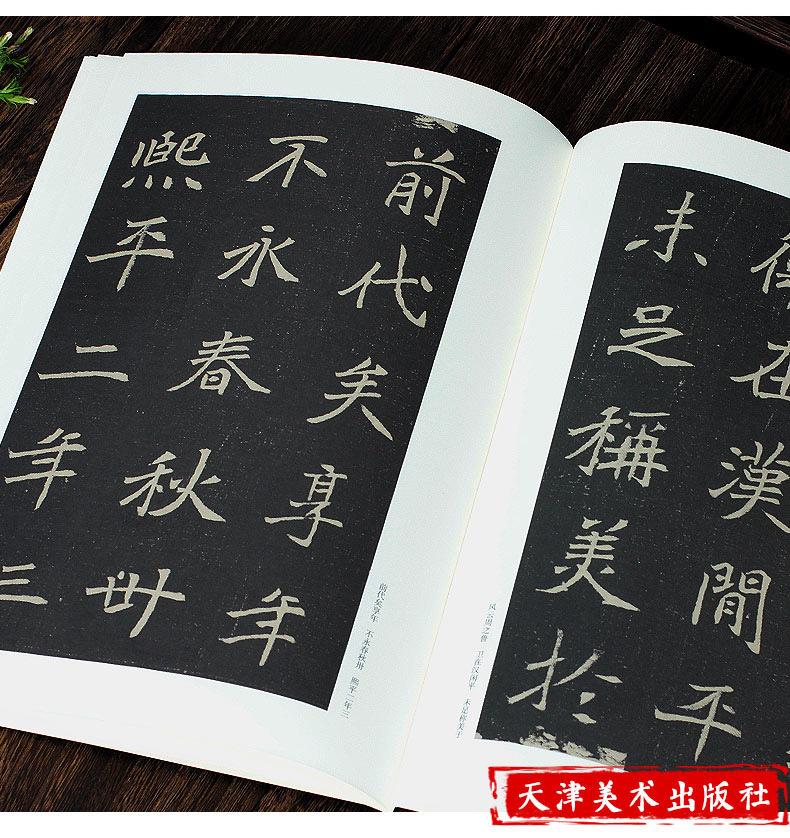 在漢閒平
未足稱美於
风云周之鲁 卫在汉闲平 未足称美于
前代矣享年
不永春秋卅
熙平二年三
前代矣享年 不永春秋卅 熙平二年三
天津美术出版社